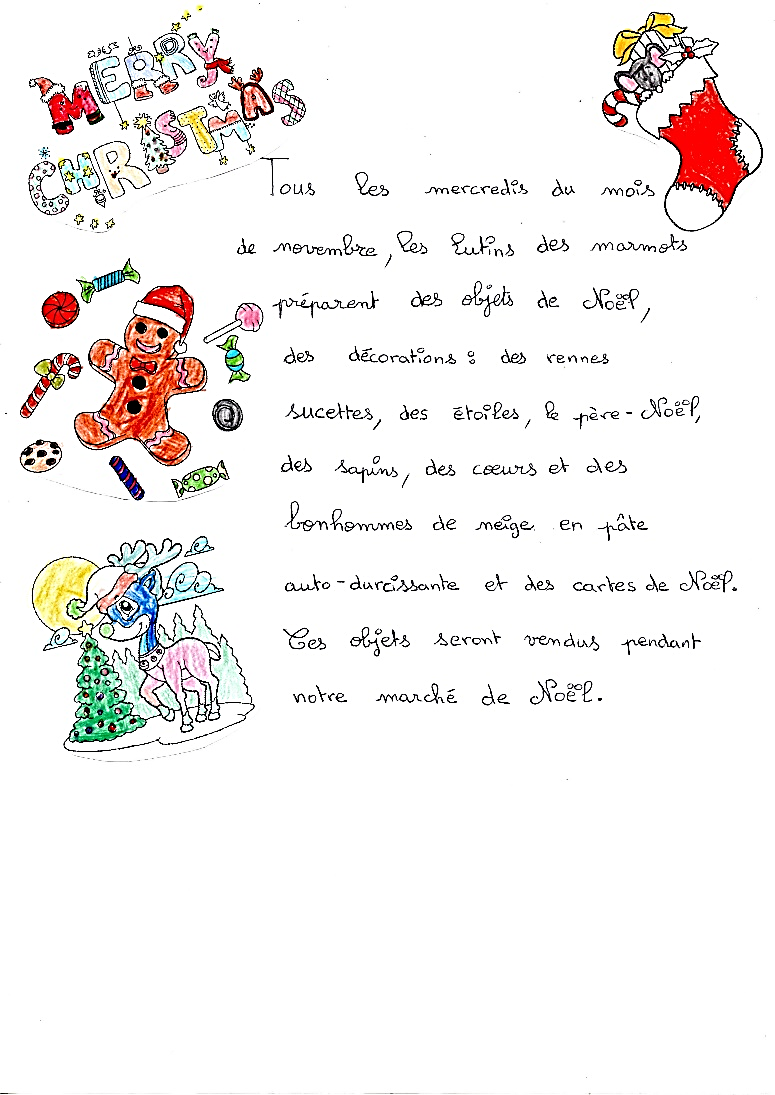 MERRY
CHRISTMAS
Tous les mercredis du mois
de novembre, les lutins des marmots
préparent des objets de Noël,
des décorations : des rennes
sucettes, des étoiles, le père-Noël,
des sapins, des cœurs et des
bonhommes de neige en pâte
auto-durcissante et des cartes de Noël.
Ces objets seront vendus pendant
notre marché de Noël.